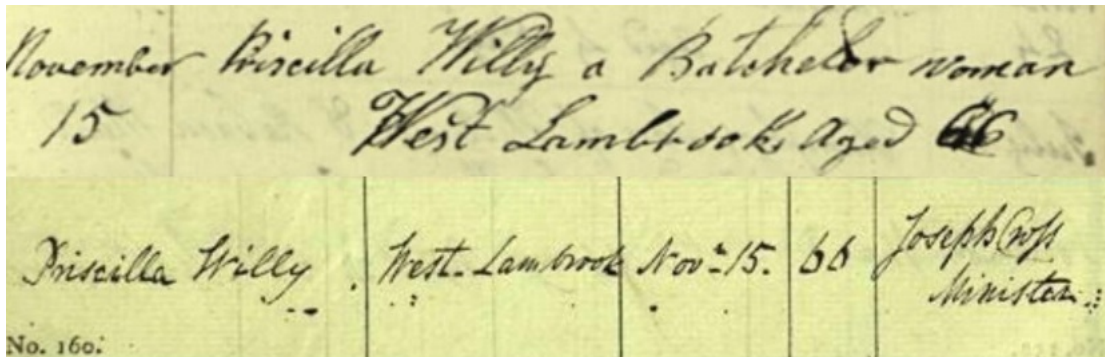 November Priscilla Willy a Batchelor woman
15 West Lambrook Aged 66
Priscilla Willy West Lambrook Novr 15. 66 Joseph Cross
Minister
No. 160.